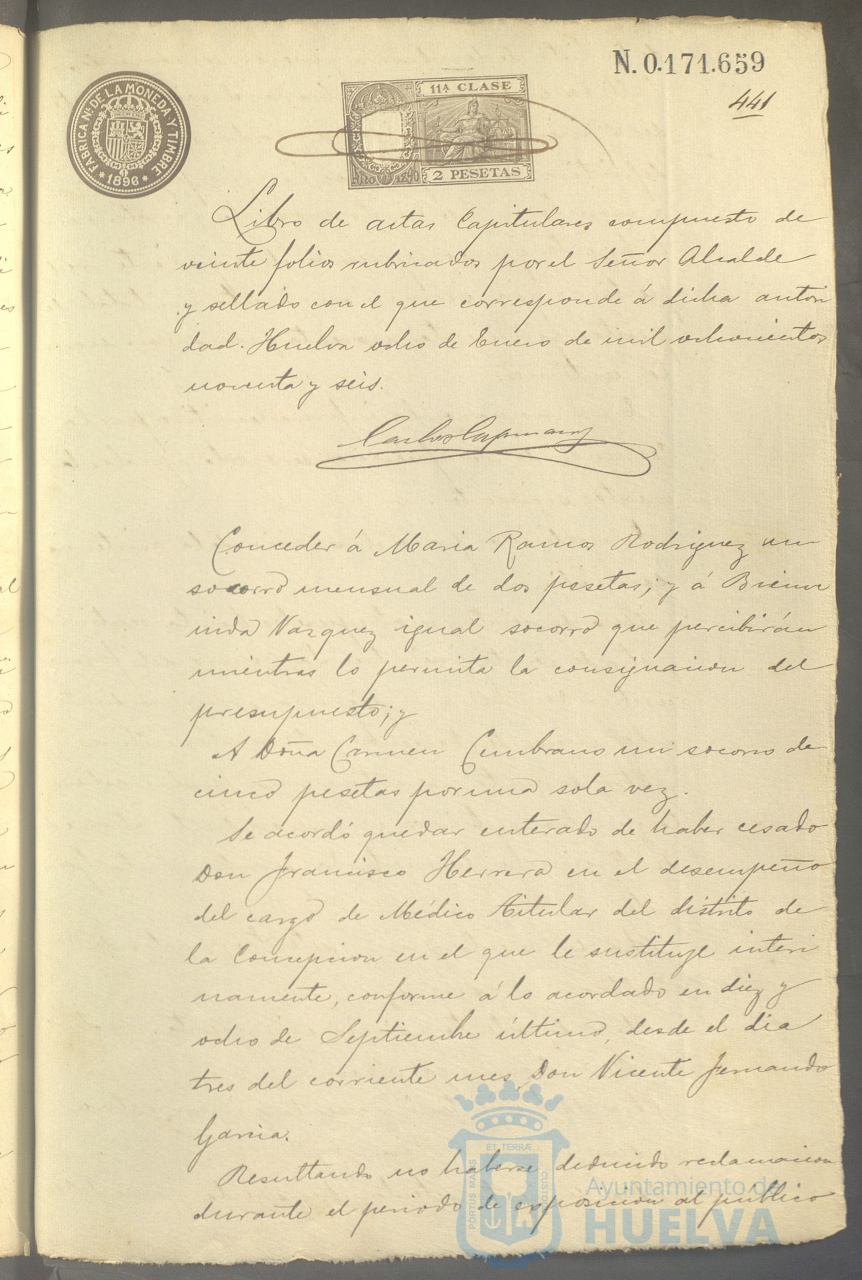 N. 0.171.659
441
FABRICA Nal DE LA MONEDA Y TIMBRE
* 1896 *
11ª CLASE
2 PESETAS
Libro de actas Capitulares compuesto de
veinte folios rubricados por el Señor Alcalde
y sellado con el que corresponde á dicha autori
dad. Huelva ocho de Enero de mil ochocientos
noventa y seis.
Conceder á Maria Ramos Rodriguez un
socorro mensual de dos pesetas; y á Bienve
nida Vazquez igual socorro que percibirán
mientras lo permita la consignacion del
presupuesto; y
A Doña Carmen Cumbrano un socorro de
cinco pesetas por una sola vez.
Se acordó quedar enterado de haber cesado
Don Francisco Herrera en el desempeño
del cargo de Médico titular del distrito de
la Concepcion en el que le sustituye interi
namente, conforme á lo acordado en diez y
ocho de Septiembre último, desde el dia
tres del corriente mes, Don Vicente Fernando
Garcia.
Resultando no haberse deducido reclamacion
durante el periodo de exposicion al público
PORTUS MARIS ET TERRÆ CUSTODIA
Ayuntamiento de
HUELVA